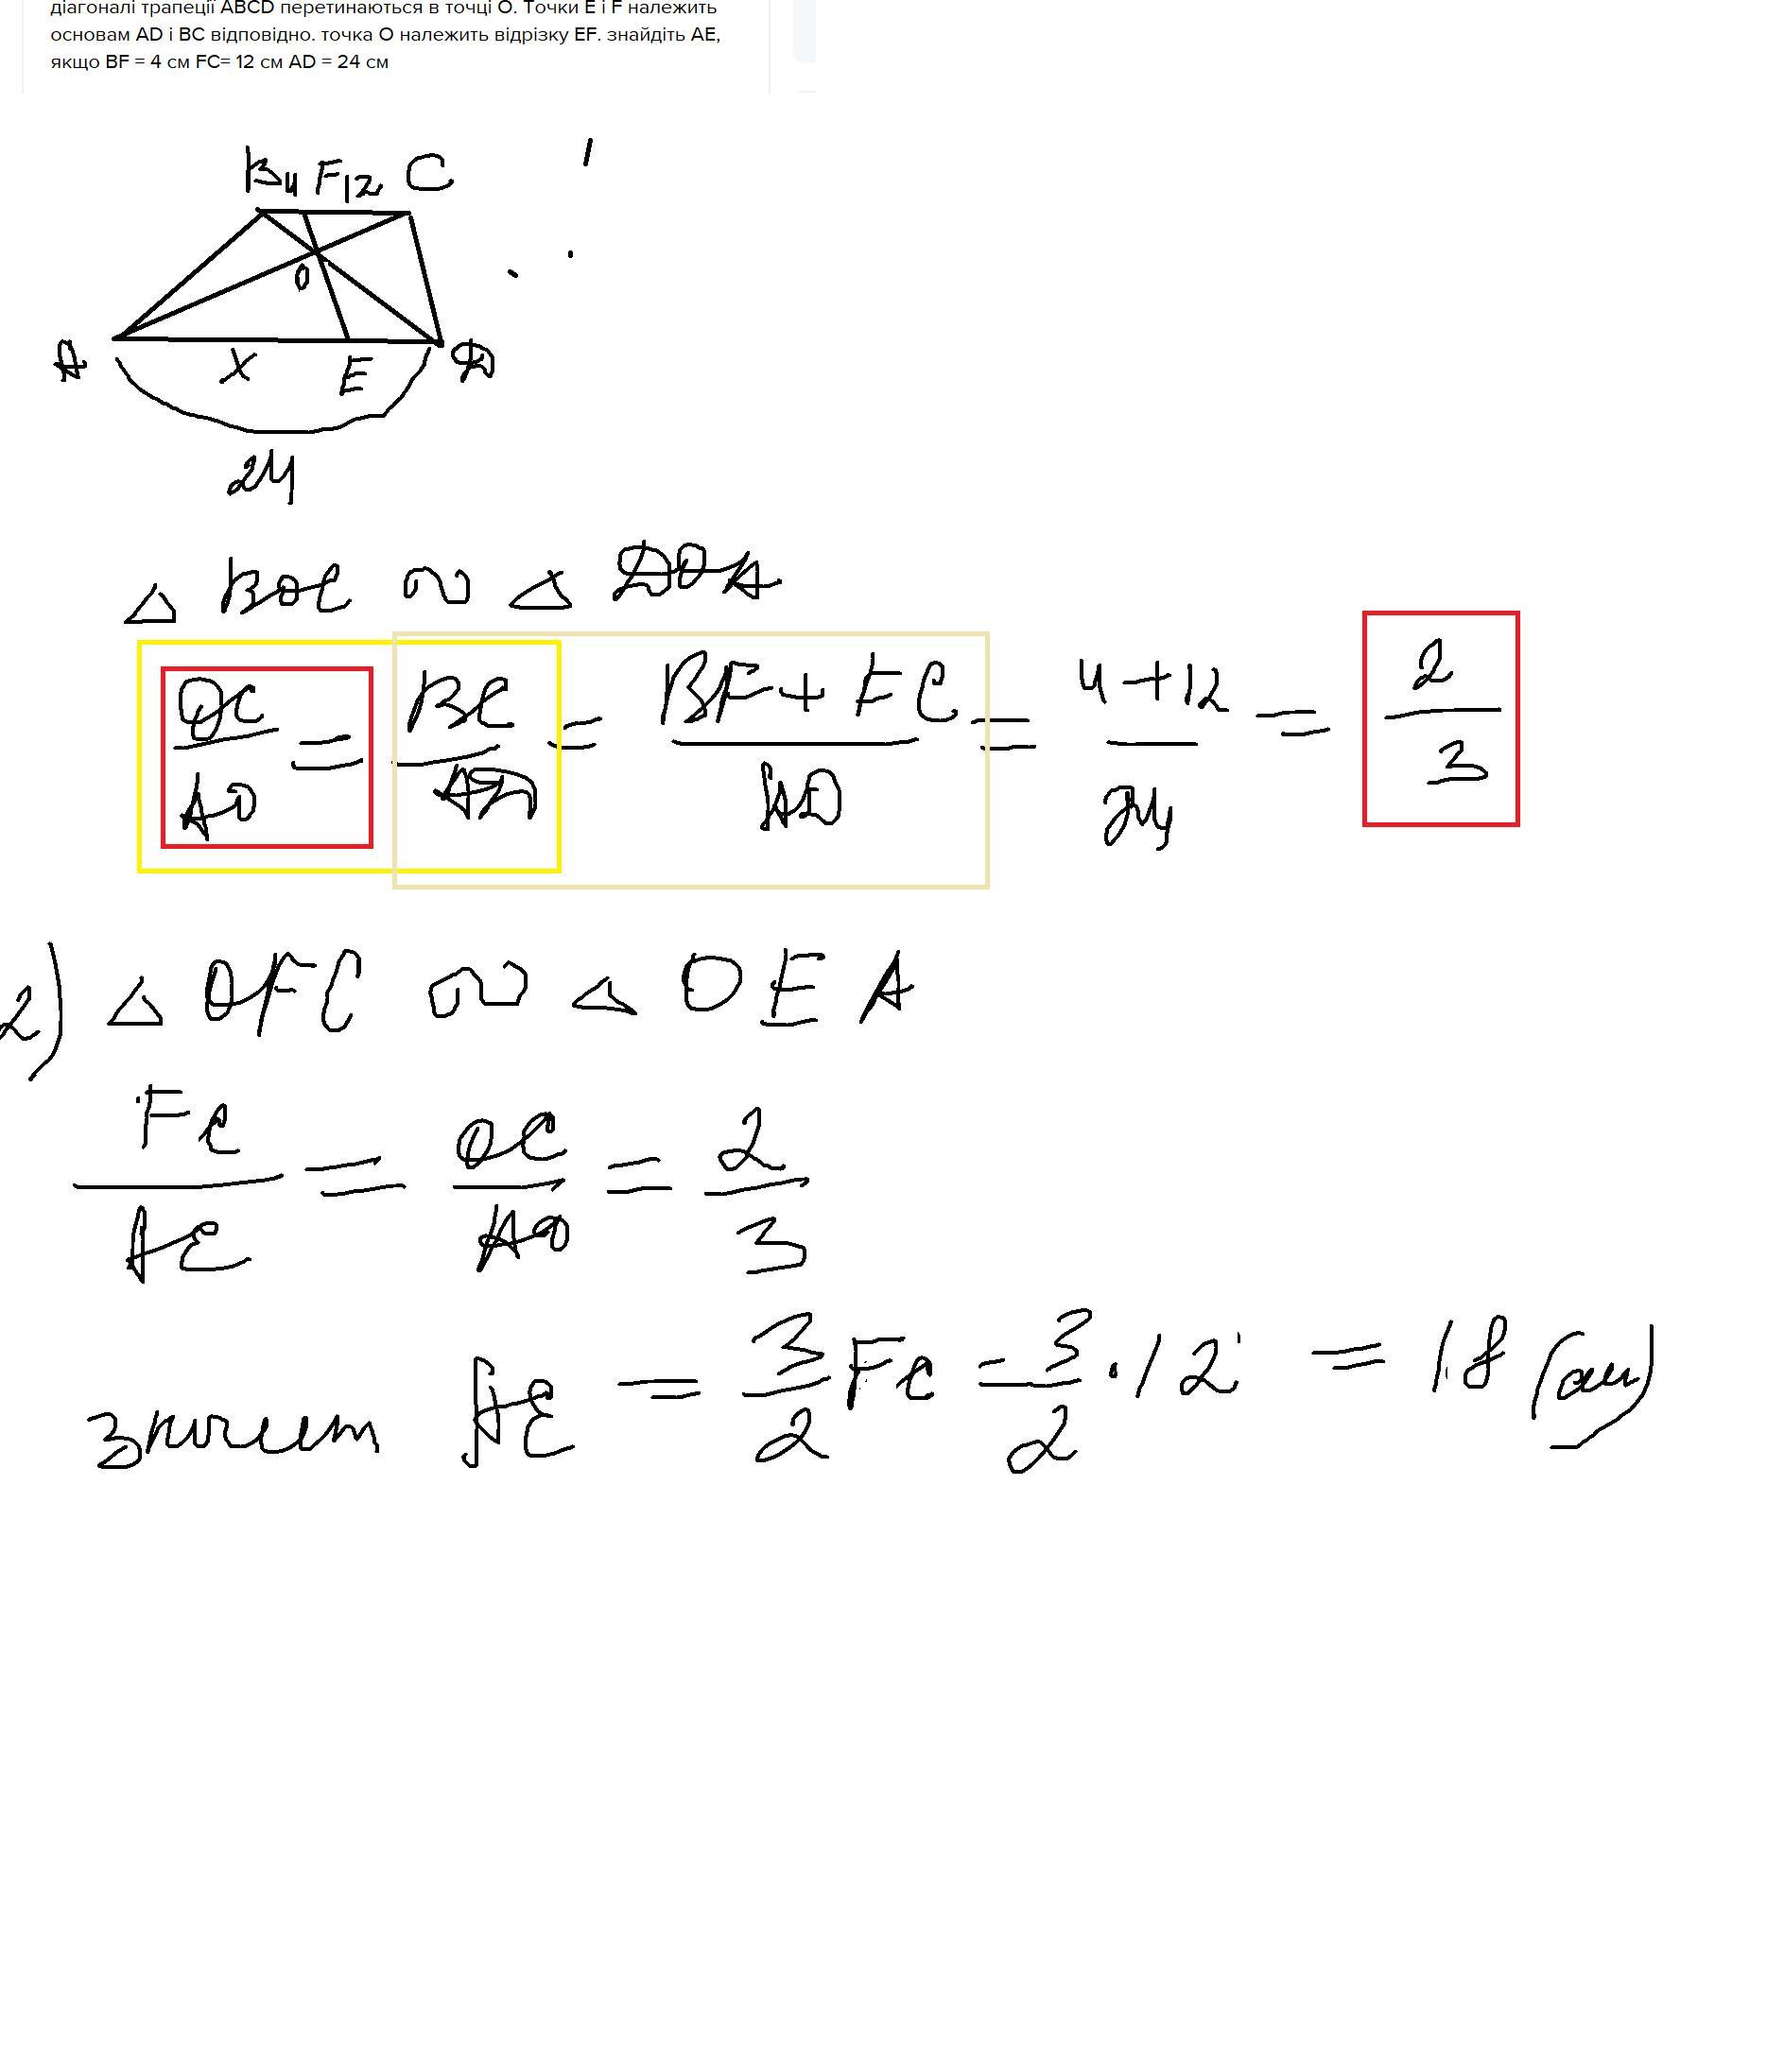 діагоналі трапеції ABCD перетинаються в точці O. Точки E і F належить
основам AD і BC відповідно. точка O належить відрізку EF. знайдіть AE,
якщо BF = 4 см FC= 12 см AD = 24 см
B 4 F 12 C
O
A X E D
24
△ BOC ∾ △ DOA
OC/AO = BC/AD = BF + FC/AD = 4+12/24 = 2/3
2) △ OFC ∾ △ OEA
FC/AE = OC/AO = 2/3
значит AE = 3/2 FC = 3/2 · 12 = 18 (см)